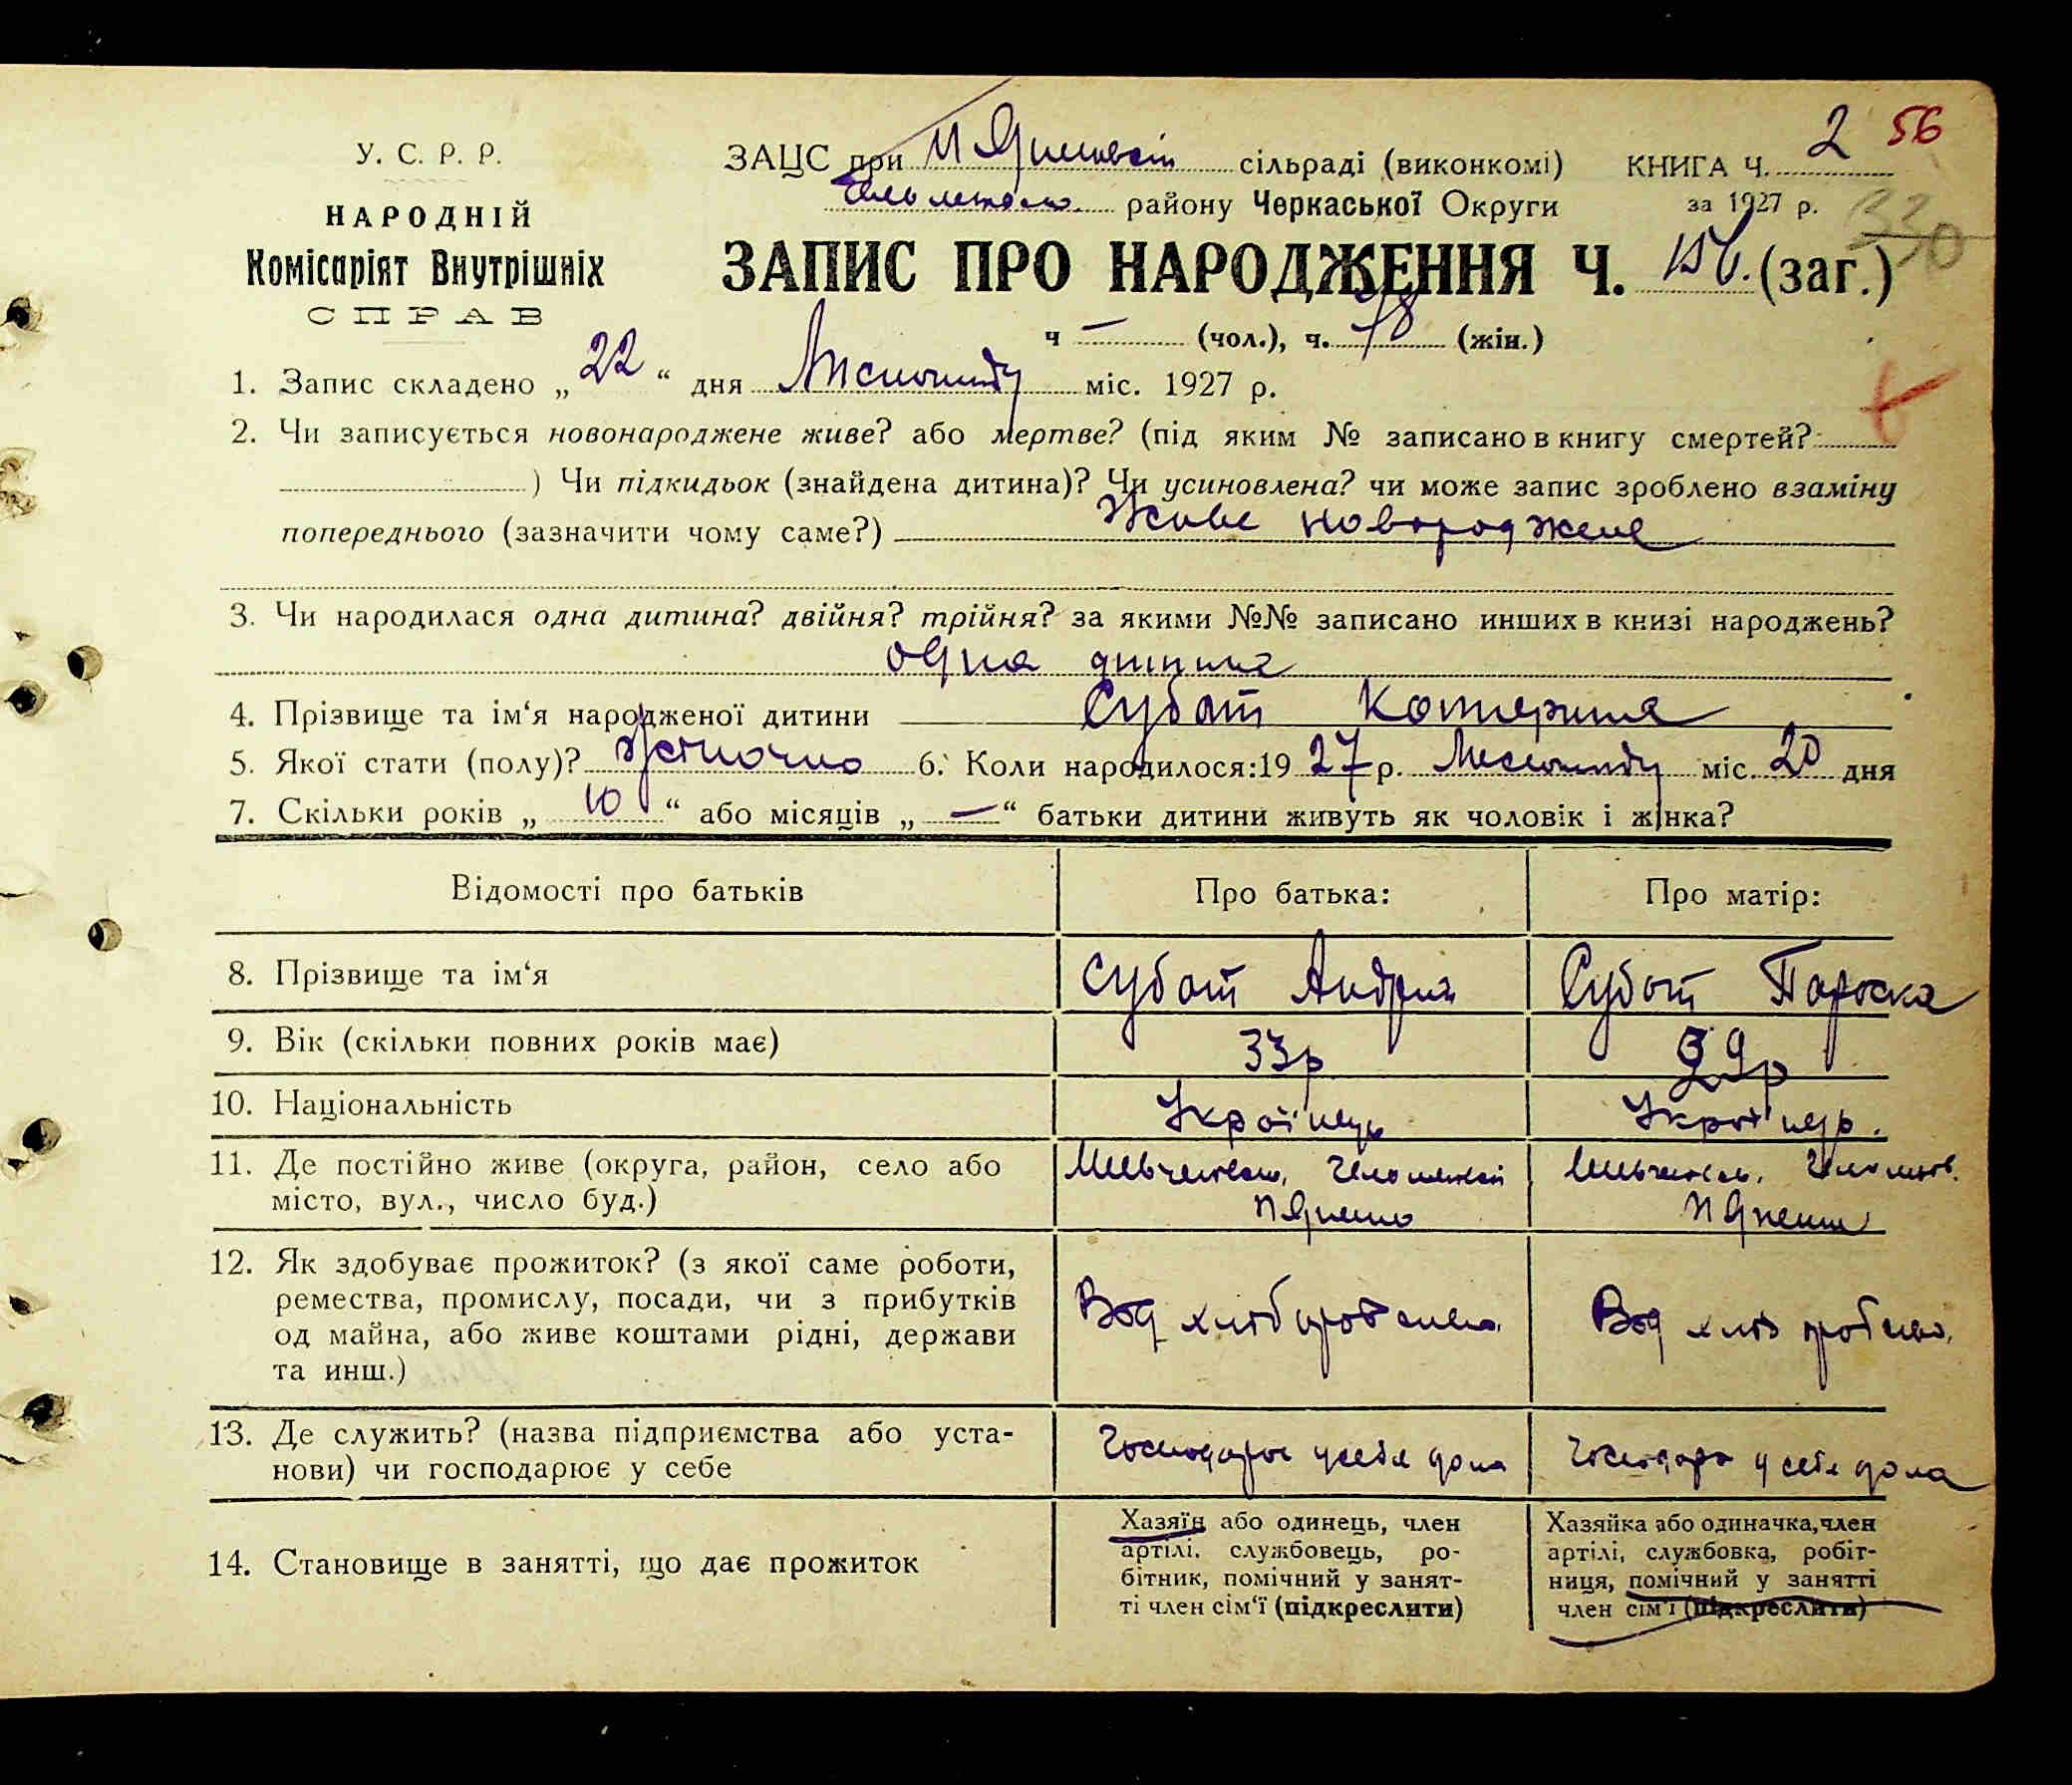 2 56
У. С. Р. Р.
ЗАЦС при сільраді (виконкомі) КНИГА Ч.
НАРОДНІЙ
району Черкаської Округи за 1927 р. 330
Комісаріят Внутрішніх
СПРАВ
ЗАПИС ПРО НАРОДЖЕННЯ Ч. 156. (заг.)
ч — (чол.), ч. 78 (жін.)
1. Запис складено „ 22 “ дня Листопаду міс. 1927 р.
2. Чи записується новонароджене живе? або мертве? (під яким № записано в книгу смертей?
) Чи підкидьок (знайдена дитина)? Чи усиновлена? чи може запис зроблено взаміну
попереднього (зазначити чому саме?) Живе новороджене
3. Чи народилася одна дитина? двійня? трійня? за якими №№ записано инших в книзі народжень?
одна дитина
4. Прізвище та ім‘я народженої дитини Субот Катерина
5. Якої стати (полу)? Жіночно 6. Коли народилося: 19 27 р. Листопаду міс. 20 дня
7. Скільки років „ 10 “ або місяців „ — “ батьки дитини живуть як чоловік і жінка?
Відомості про батьків Про батька: Про матір:
8. Прізвище та ім‘я Субот Андрій Субот Параска
9. Вік (скільки повних років має) 33р 29р
10. Національність Україпець Україпець.
11. Де постійно живе (округа, район, село або
місто, вул., число буд.)
12. Як здобуває прожиток? (з якої саме роботи,
ремества, промислу, посади, чи з прибутків
од майна, або живе коштами рідні, держави
та инш.)
Вод хлібороб Вод хліб
13. Де служить? (назва підприємства або уста-
нови) чи господарює у себе
Господарює у себе дома у себе дома
14. Становище в занятті, що дає прожиток
Хазяїн або одинець, член
артілі, службовець, ро-
бітник, помічний у занят-
ті член сім‘ї (підкреслити)
Хазяйка або одиначка, член
артілі, службовка, робіт-
ниця, помічний у занятті
член сім‘ї (підкреслити)